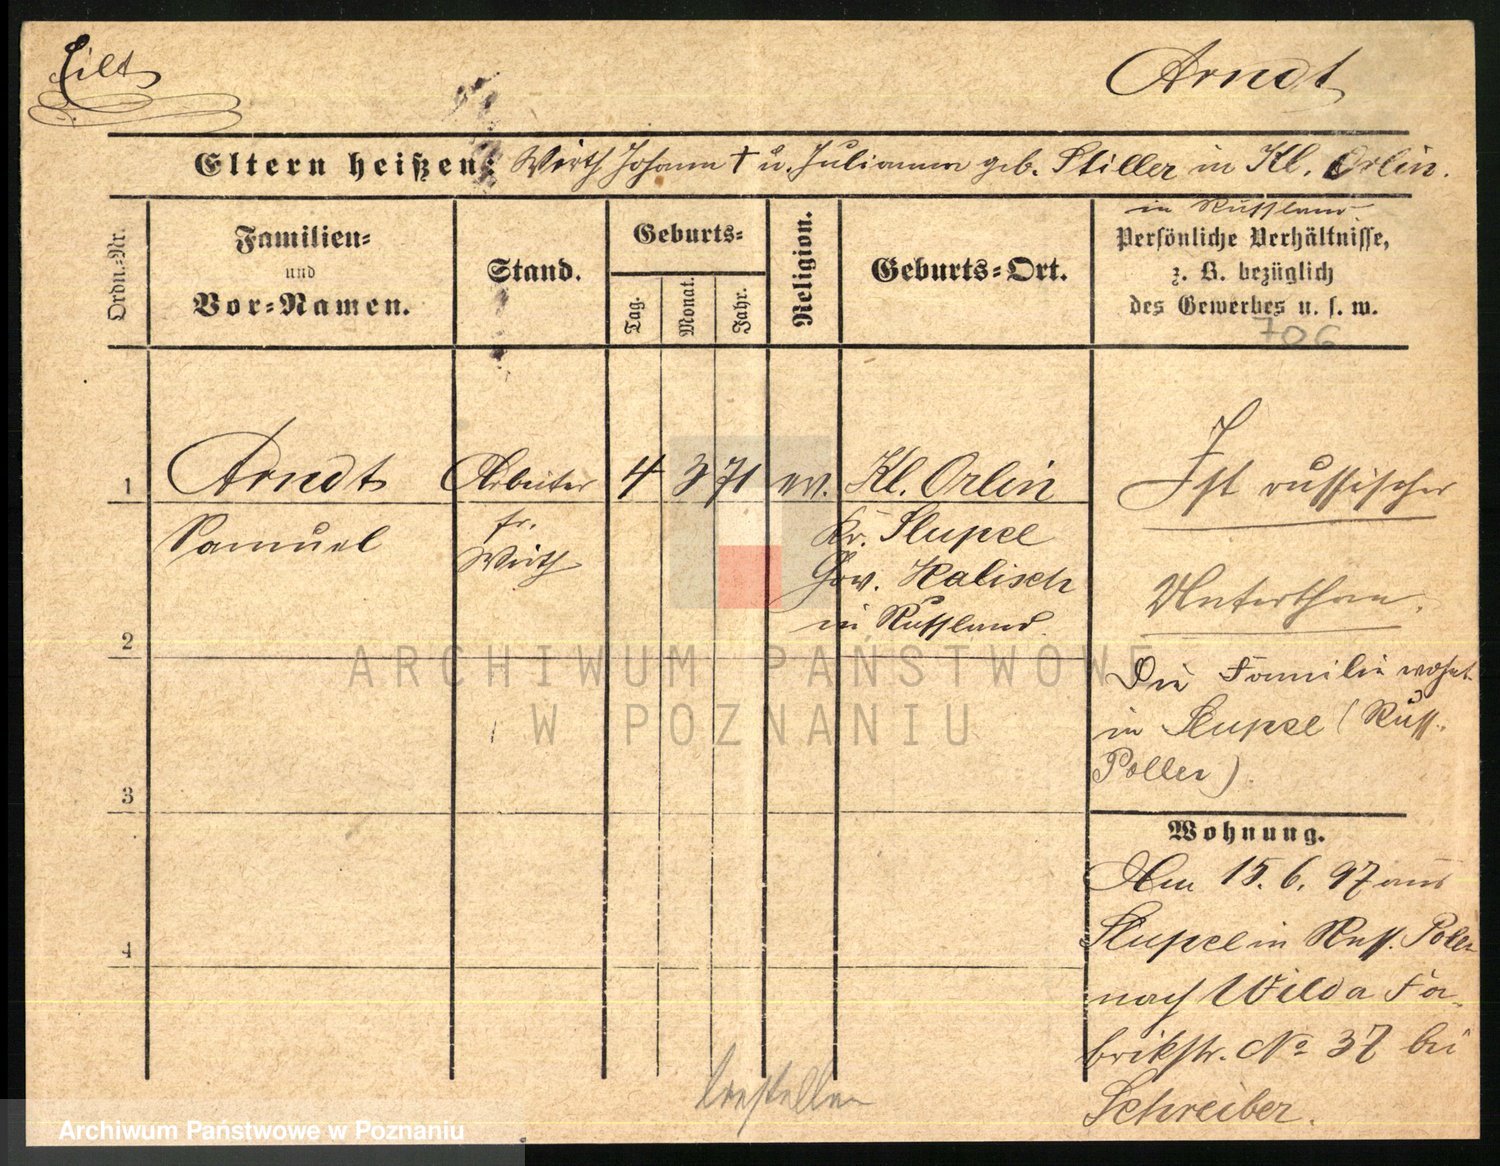 Eilt
Arndt
Eltern heißen: Wirth Johann † u. Julianna geb. Stiller in Kl. Orlin.
in Russland
Ordn.-Nr.
Familien-
und
Vor-Namen.
Stand.
Geburts-
Tag.
Monat.
Jahr.
Religion.
Geburts-Ort.
Persönliche Verhältnisse,
z. B. bezüglich
des Gewerbes u. s. w.
706
1
Arndt
Arbeiter
4 3 71
ev.
Kl. Orlin
Samuel
fr.
Wirth
Kr. Slupce
Gow. Kalisch
in Russland
Ist russischer
Unterthan.
2
Die Familie wohnt
in Slupce (Russ.
Pollen)
3
Wohnung.
Am 15. 6. 97 aus
Slupce in Russ. Polen
nach Wilda Fa-
brikstr. No 37 bei
Schreiber.
4
bestellen
ARCHIWUM PAŃSTWOWE
W POZNANIU
Archiwum Państwowe w Poznaniu